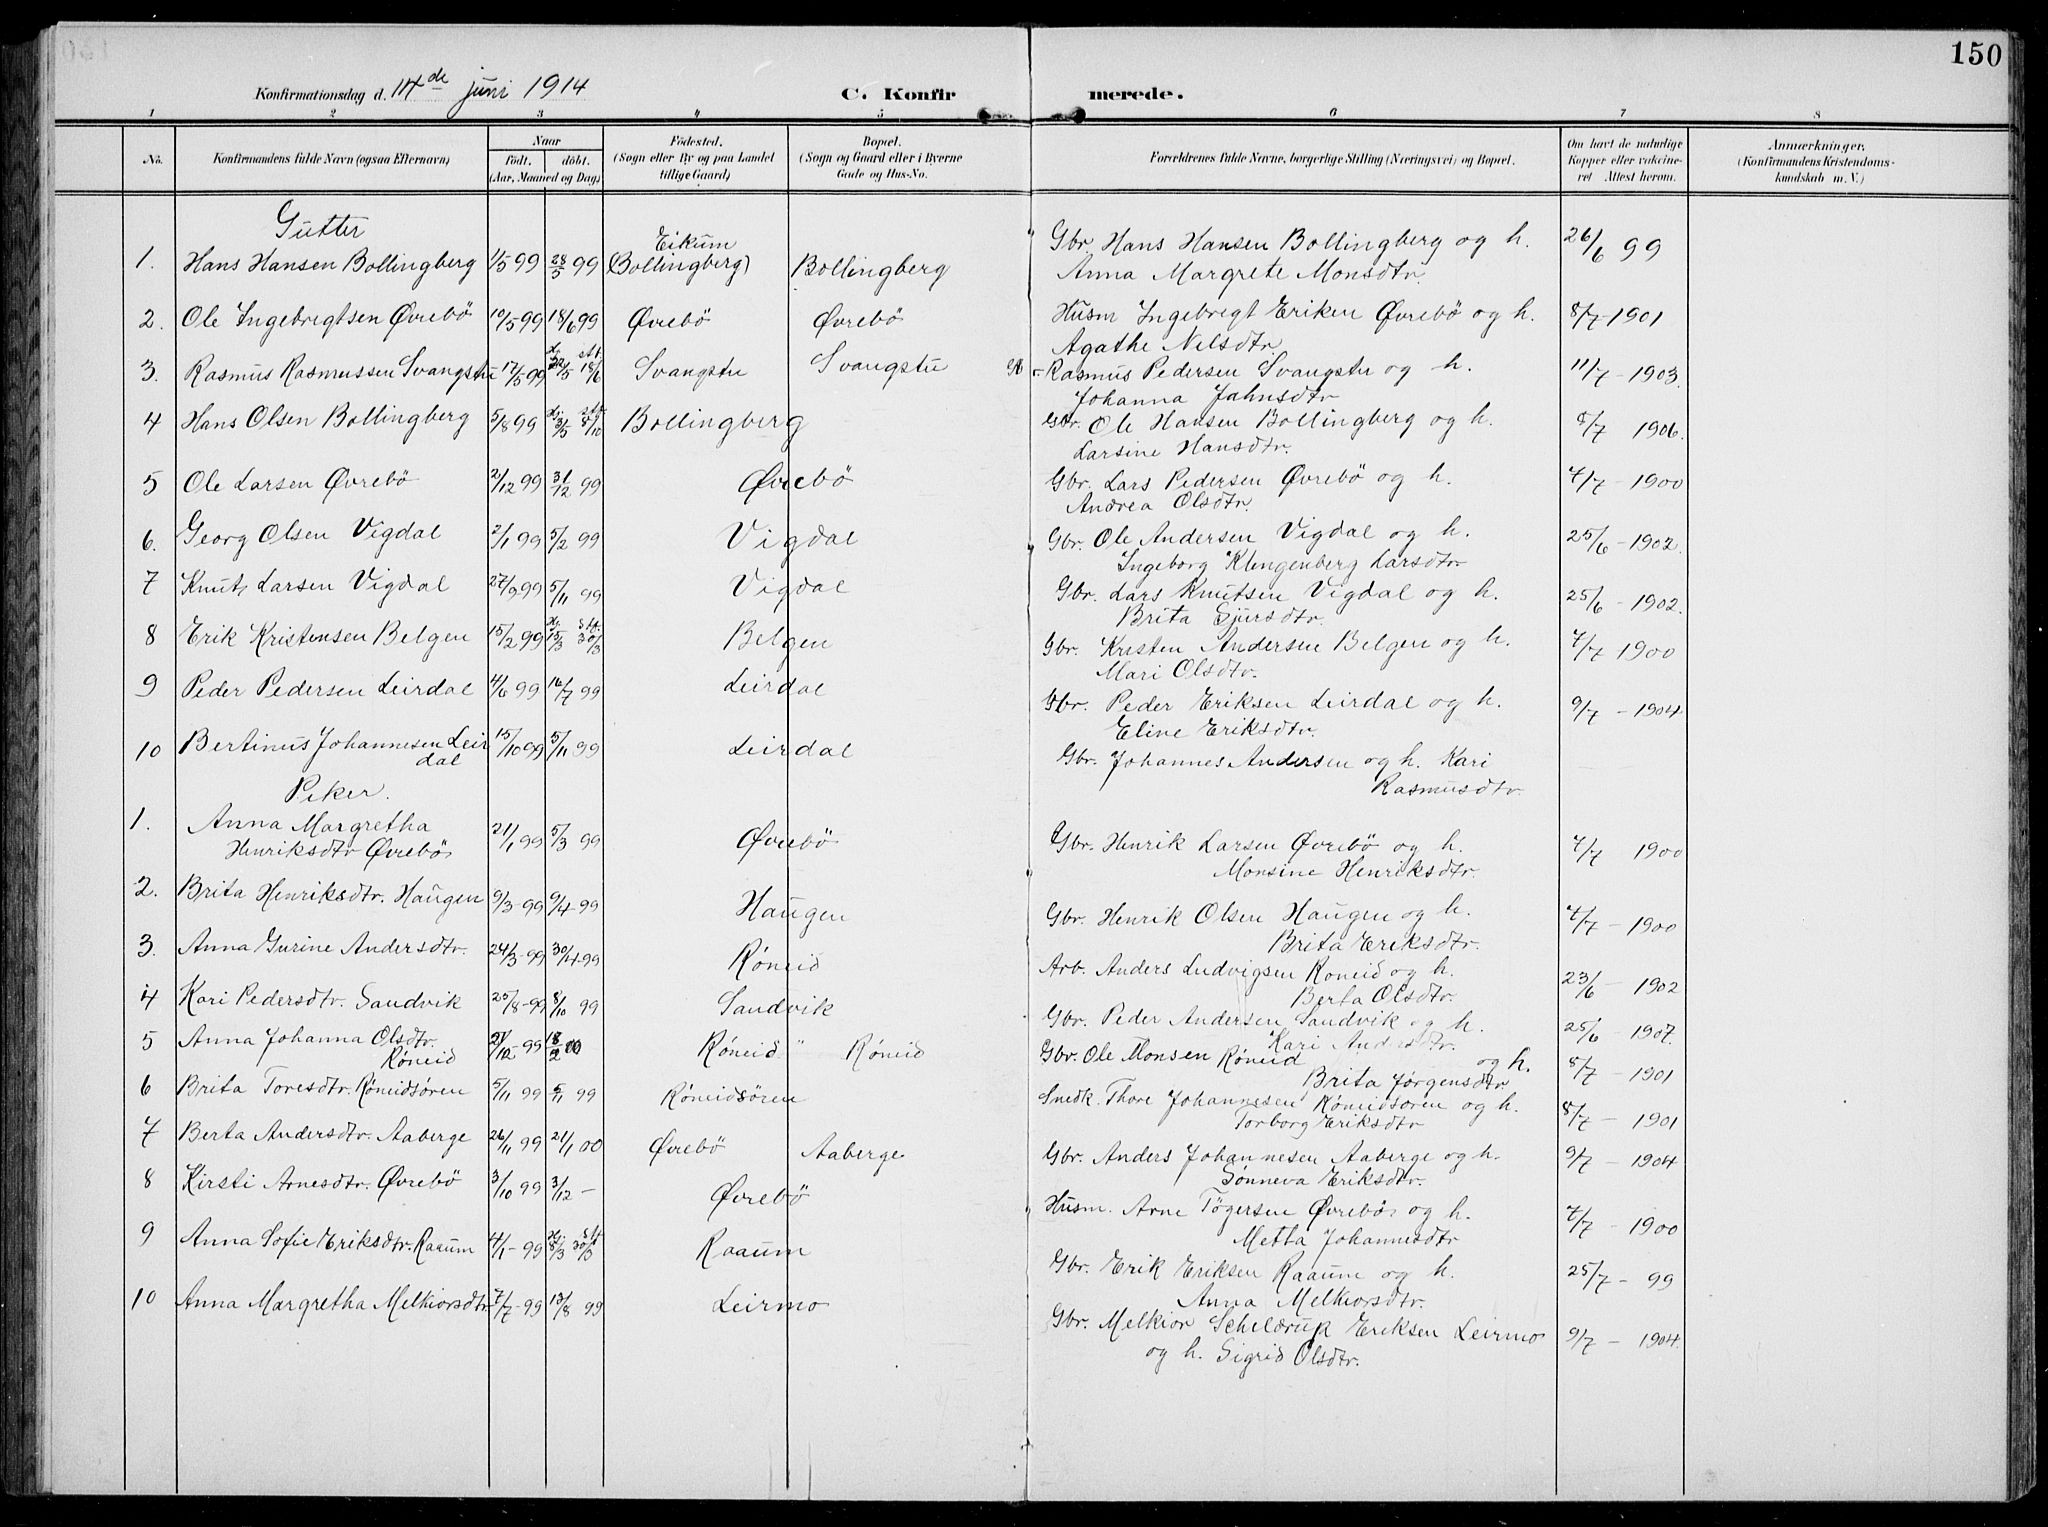 150
Konfirmationsdag d. 14de juni 1914
C. Konfirmerede.
1 2 3 4 5 6 7 8
No.
Konfirmandens fulde Navn (ogsaa Efternavn)
Naar
födt. döbt.
(Aar, Maaned og Dag)
Födested.
(Sogn eller By og paa Landet
tillige Gaard)
Bopæl.
(Sogn og Gaard eller i Byerne
Gade og Hus-No.
Forældrenes fulde Navne, borgerlige Stilling (Næringsvei) og Bopæl.
Om havt de naturlige
Kopper eller vakcine-
ret Attest herom.
Anmærkninger.
(Konfirmandens Kristendoms-
kundskab m. V.)
Gutter
1. Hans Hansen Bollingberg 1/5 99 28/5 99 Eikum (Bollingberg) Bollingberg Gbr. Hans Hansen Bollingberg og h. 26/6 99
Anna Margrete Monsdtr.
2. Ole Ingebrigtsen Øvrebö 10/5 99 18/6 99 Øvrebö Øvrebö Husm Ingebregt Eriken Øvrebö og h. 8/7 1901
Agathe Nelsdtr.
3. Rasmus Rasmussen Svangstu 17/5 99 hj. 22/5 stf. 18/6 Svangstu Svangstu Rasmus Pedersen Svangstu og h. 11/7 - 1903.
Johanna Jahnsdtr
4 Hans Olsen Bollingberg 5/8 99 hj. stf. 8/10 Bollingberg Gbr. Ole Hansen Bollingberg og h. 8/7 1906.
Larsine Hansdtr.
5 Ole Larsen Øvrebö 2/12 99 31/12 99 Øvrebö Gbr. Lars Pedersen Øvrebö og h. 7/7 - 1900
Andrea Olsdtr.
6. Georg Olsen Vigdal 2/1 99 5/2 99 Vigdal Gbr. Ole Andersen Vigdal og h. 25/6 - 1902.
Ingeborg Klengenberg Larsdtr.
7 Knut Larsen Vigdal 27/9 99 5/11 99 Vigdal Gbr. Lars Knutsen Vigdal og h. 25/6 - 1902.
Brita Sjursdtr.
8 Erik Kristensen Belgen 15/2 99 hj. 15/3 stf. 30/3 Belgen Gbr. Kristen Andersen Belgen og h. 7/7 1900
Mari Olsdtr.
9 Peder Pedersen Leirdal 4/6 99 16/7 99 Leirdal Gbr. Peder Eriksen Leirdal og h. 9/7 - 1904
Eline Eriksdtr.
10 Bertinus Johannesen Leir 15/10 99 5/11 99 Leirdal Gbr. Johannes Andersen og h. Kari
dal Rasmusdtr.
Piker.
1. Anna Margretha 21/1 99 5/3 99 Øvrebö Gbr. Henrik Larsen Øvrebö og h. 7/7 1900
Henriksdtr Øvrebö Monsine Henriksdtr.
2. Brita Henriksdtr. Haugen 9/3-99 9/4-99 Haugen Gbr. Henrik Olsen Haugen og h. 7/7 - 1900
Brita Eriksdtr.
3. Anna Gurine Andersdtr. 24/3-99 30/4-99 Röneid Arb. Anders Ludvigsen Roneid og h. 23/6 - 1902
Berta Olsdtr.
4 Kari Pedersdtr. Sandvik 25/8-99 8/10 99 Sandvik Gbr. Peder Andersen Sandvik og h. 25/6 - 1907.
Kari Andersdtr.
5 Anna Johanna Olsdtr. 21/12-99 18/2 00 Röneid " Röneid Gbr. Ole Monsen Röneid og h. 8/7 - 1901
Röneid Brita Jørgensdtr
6 Brita Toresdtr. Röneidsören 5/11 99 5/11 99 Röneidsören Snedk. Thore Johannesen Röneidsören og h. 8/7 - 1901
Torborg Eriksdtr
7 Berta Andersdtr. Aaberge 26/11 99 21/1 00 Øvrebö Aaberge Gbr. Anders Johannesen Aaberge og h. 9/7 - 1904
Sönneva Eriksdtr.
8 Kirsti Arnesdtr. Øvrebö 3/10 99 3/12 - Øvrebö Husm. Arne Tögersen Øvrebö og h. 7/7 - 1900
Metta Johannesdtr
9 Anna Sofie Eriksdtr. Raaum 4/1-99 hj. 8/3 stf 30/3 Raaum Gbr. Erik Eriksen Raaum og h. 25/7 - 99
Anna Melkiorsdtr.
10 Anna Margretha Melkiorsdtr. 7/7-99 13/8 99 Leirmo Gbr. Melkior Scheldrup Eriksen Leirmo 9/7 - 1904.
og h. Sigrid Olsdtr.